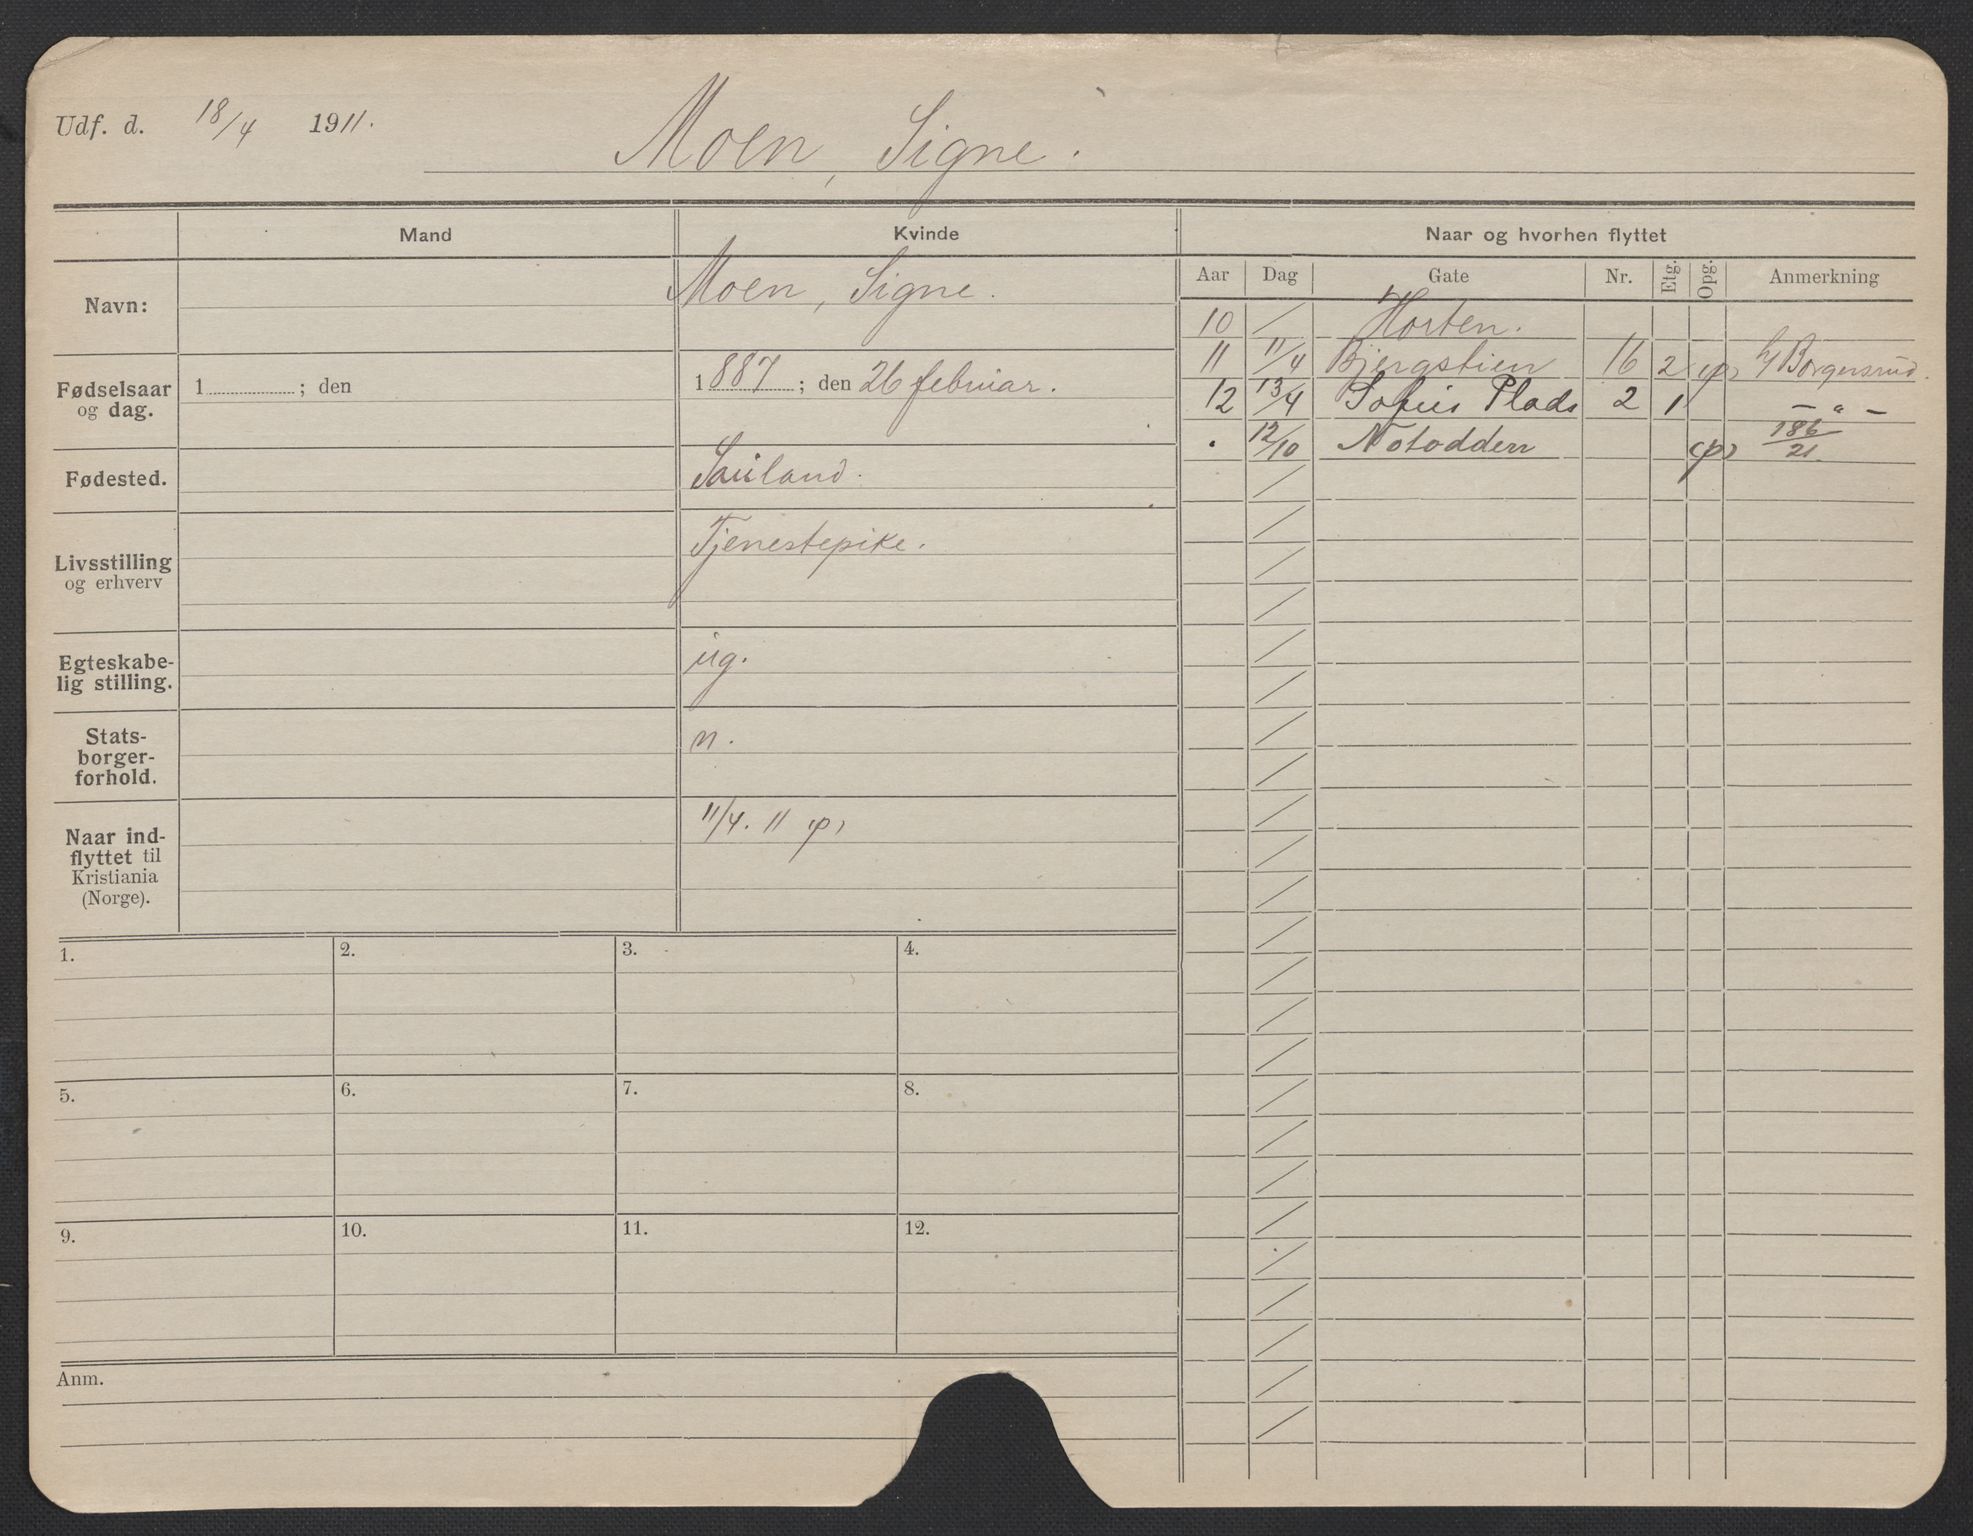 Udf. d. 18/4 1911.
Moen, Signe.
Mand
Kvinde
Naar og hvorhen flyttet
Aar Dag Gate Nr. Etg. Opg. Anmerkning
Navn:
Moen, Signe.
Fødselsaar
og dag.
1 ; den
1887 ; den 26 februar.
Fødested.
Sauland.
Livsstilling
og erhverv
Tjenestepike.
Egteskabe-
lig stilling.
ug.
Stats-
borger-
forhold.
n.
Naar ind-
flyttet til
Kristiania
(Norge).
11/4. 11 (p)
10 / Horten.
11 11/4 Bjergstien 16 2 (p) Borgersrud.
12 13/4 Sofies Plads 2 1 – " –
. 12/10 Notodden (p) 186/21
1.
2.
3.
4.
5.
6.
7.
8.
9.
10.
11.
12.
Anm.